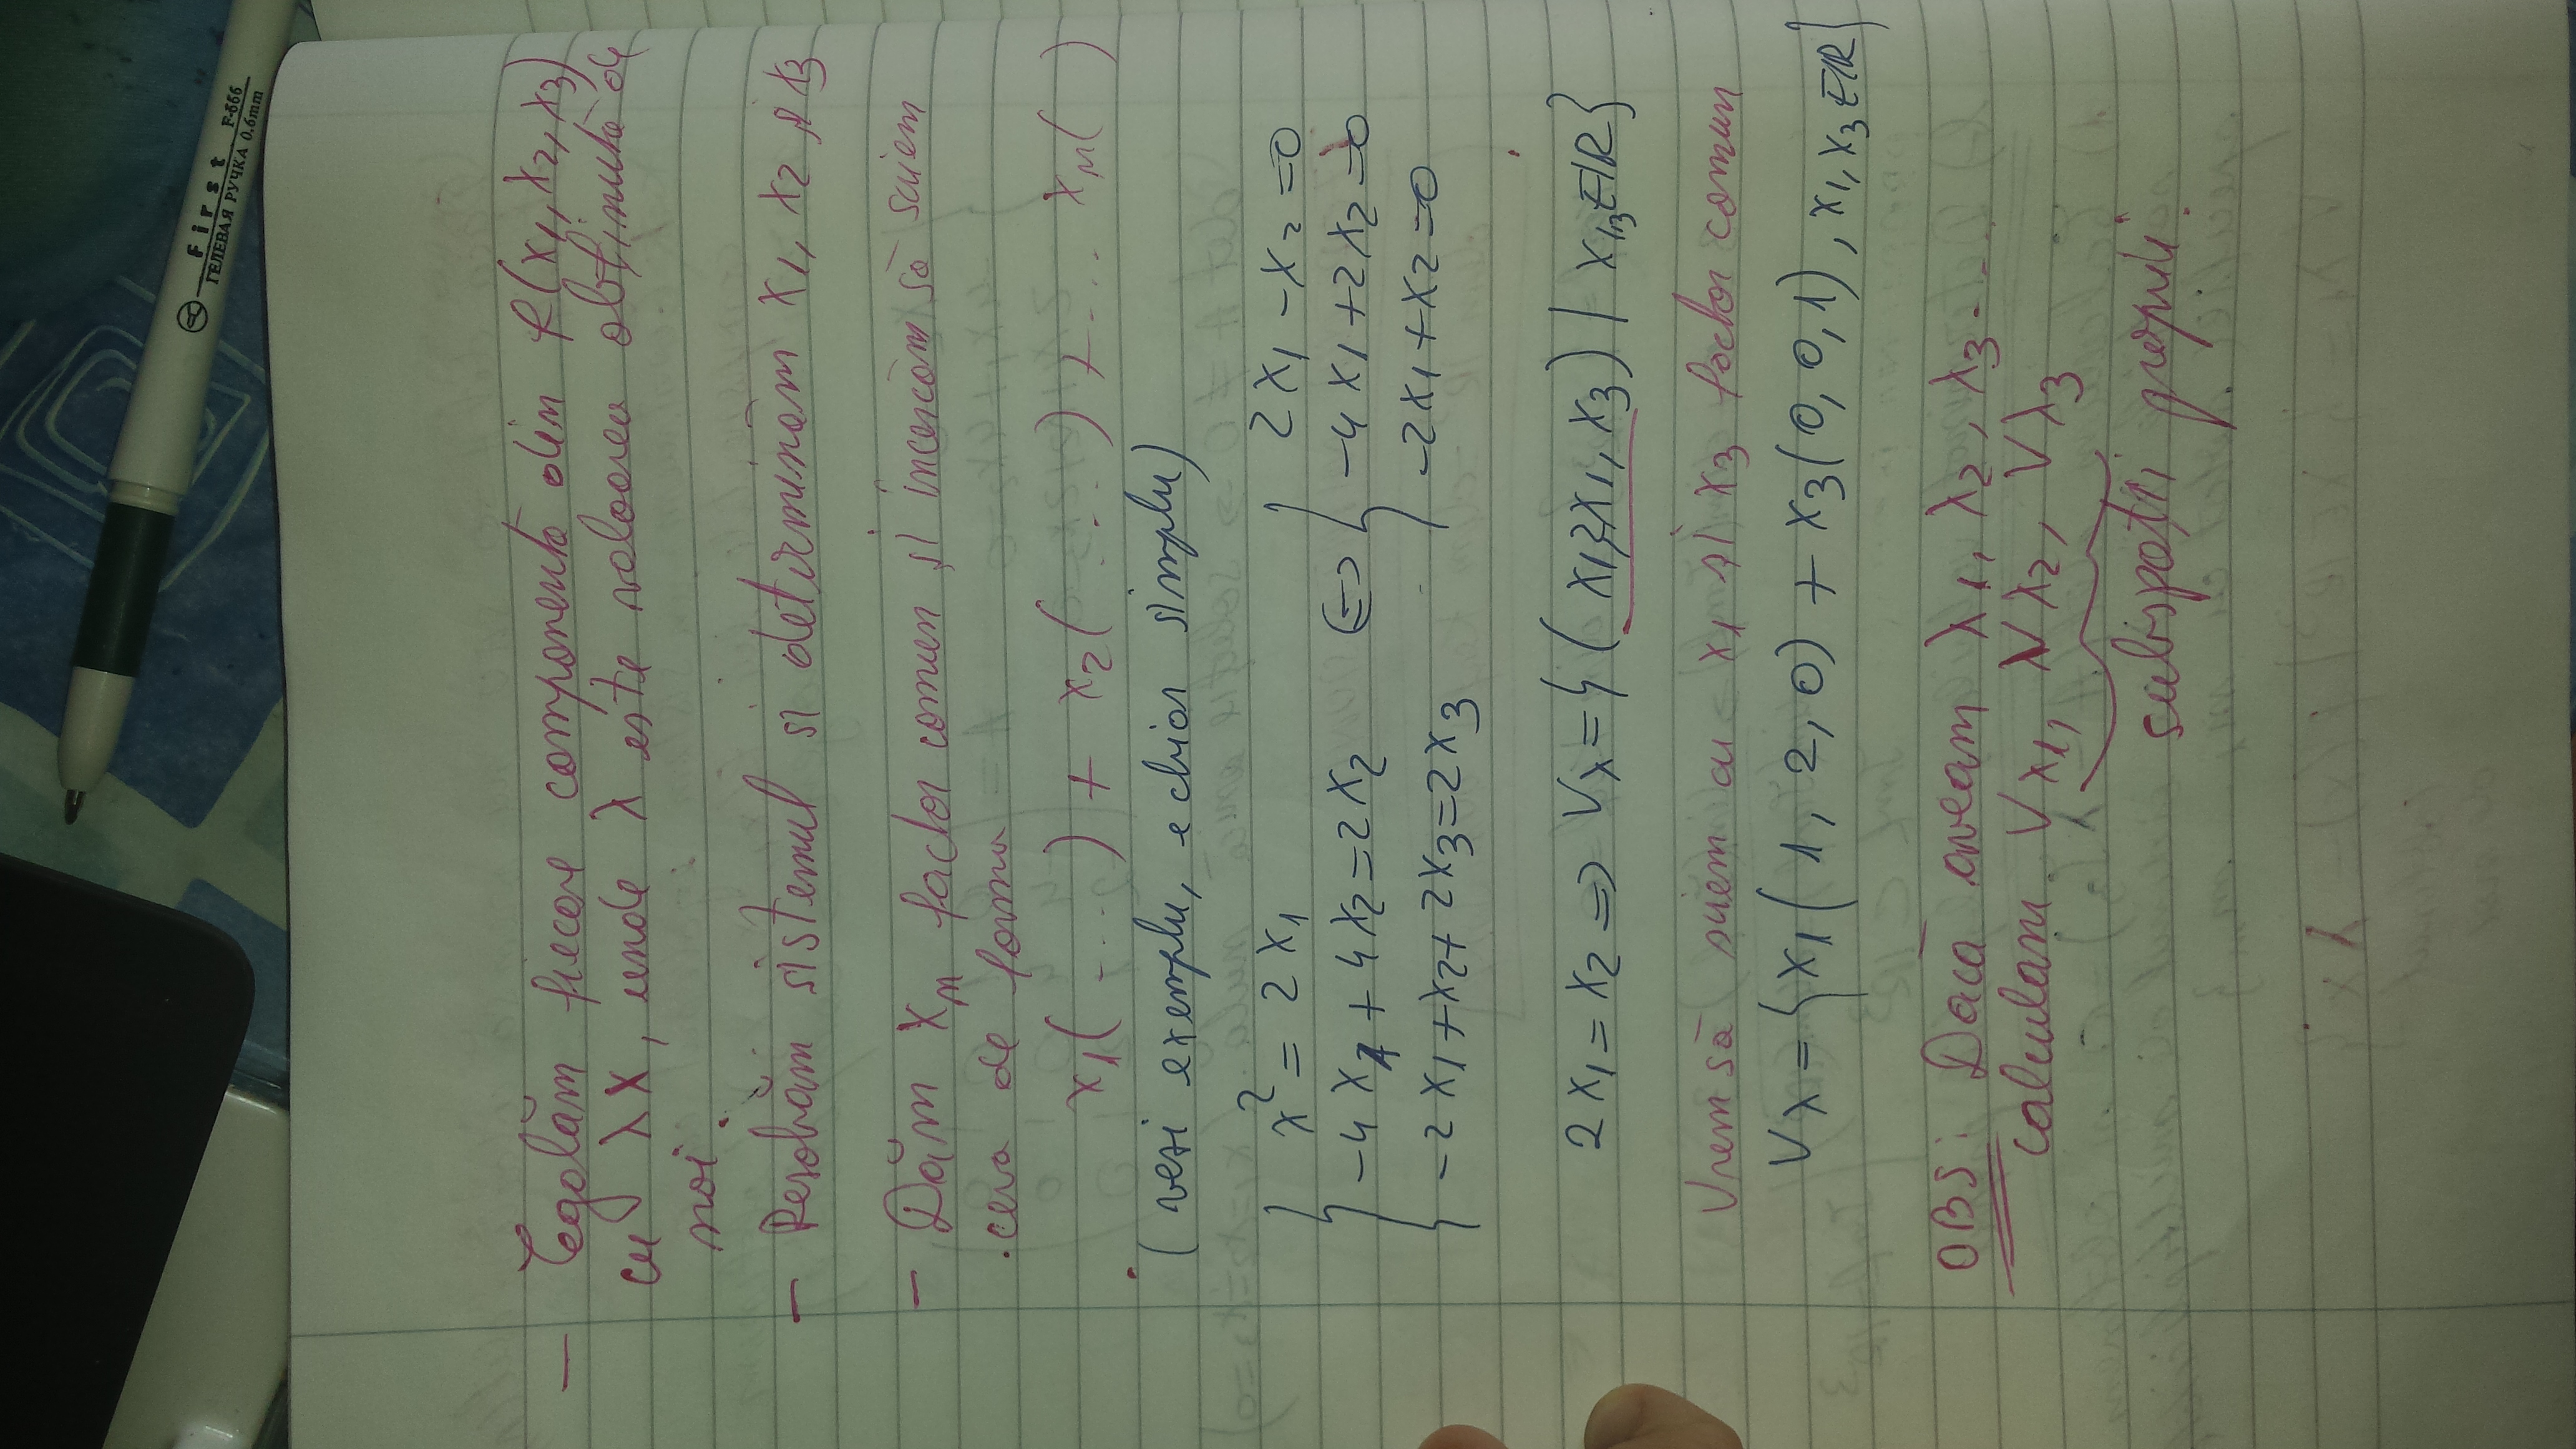 First F-666
ГЕЛЕВАЯ РУЧКА 0.6mm
- Egalăm fiecare componentă din f(x₁, x₂, x₃)
cu λx, unde λ este valoarea obținută de
noi.
- Rezolvăm sistemul si determinăm x₁, x₂ și x₃
- Dăm xₙ factor comun și încercăm să sciem
ceva de forma
x₁( ....) + x₂( ....) + ... xₙ( )
(vezi exemplu, e chiar simplu)
{ x² = 2x₁ ⇔ { 2x₁ - x₂ = 0
-4x₁ + 4x₂ = 2x₂ -4x₁ + 2x₂ = 0
-2x₁ + x₂ + 2x₃ = 2x₃ -2x₁ + x₂ = 0
2x₁ = x₂ => Vλ = { (x₁, 2x₁, x₃) | x₁,₃ ∈ IR }
Vrem să sciem cu x₁ și x₃ factor comun
Vλ = { x₁(1, 2, 0) + x₃(0, 0, 1), x₁, x₃ ∈ IR }
OBS: Dacă aveam λ₁, λ₂, λ₃ ...
calculam Vλ₁, Vλ₂, Vλ₃
subspații proprii.